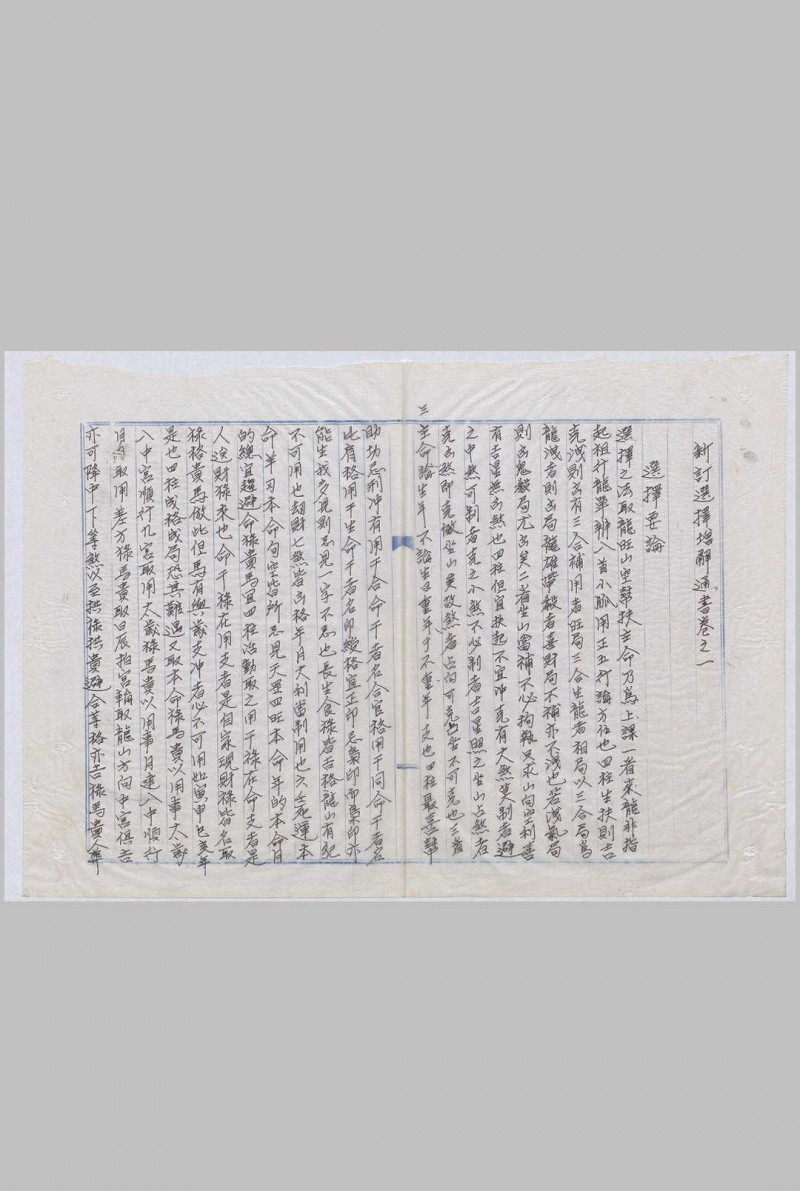 新訂選擇增解通書卷之一
選擇要論
選擇之法取龍旺山空幫扶主命乃爲上課一着來龍非指
起祖行龍單辨入首小脈用正五行論方位也四柱生扶則吉
克洩則凶有三合補用者旺局三合生龍者相局以三合局爲
龍洩者則凶局龍雄帶殺者喜財局不補亦不洩也若洩氣局
則凶鬼殺局尤凶矣二者坐山當補不必拘執只求山向空利喜
有吉星無凶煞也四柱但宜扶起不宜冲克有大煞莫制者避
之中煞可制者克之小煞不必制者吉星照之坐山占煞者
克凶煞即克坐山矣故煞者占向可克占坐不可克也三者
三主命論生年不論生日重年干不重年支也四柱最喜幫
助切忌刑冲有用干合命干者名合官格用干同命干者名
比肩格用干生命干者名印綬格宜正印忌梟印而梟印亦
能生我多見則忌見一字不忌也長生食祿皆吉格龍山有犯
不可用也刼財七煞皆凶格年月大利當制用也又忌運本
命羊刃本命旬空皆所忌見天罡四旺本命年的本命日
的總宜避命祿貴馬宜四柱活動取之用干祿在命支者是
人送財祿來也命干祿在用支者是自家現財祿皆名取
祿格貴馬倣此但馬有與歲支冲者必不可用如寅申巳亥年
是也四柱成格成局恐其難遇又取本命祿馬貴以用事太歲
入中宮順行九宮取用太歲祿馬貴以用事月建入中順行
月內取用差方祿馬貴取日辰拍宮輪取龍山方向中宮俱吉
亦可降中下等煞以至拱祿拱貴避合等格亦吉祿馬貴人年